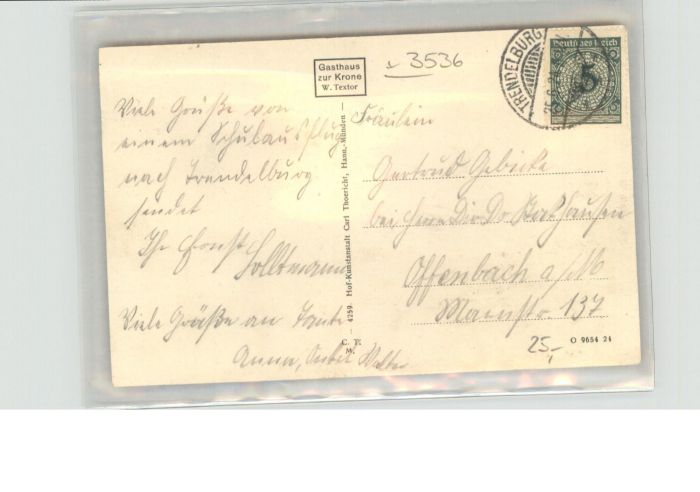 3536
Gasthaus
zur Krone
W. Textor
TRENDELBURG
Deutsches Reich
5
Viele Grüße von
einem Schulausflug
nach Trendelburg
sendet
Ihr Ernst
Viele Grüße an Tante
Anna, Onkel Walter
C. T.
M.
4259. Hof-Kunstanstalt Carl Thoericht, Hann.-Münden
Fräulein
Gertrud Gebicke
bei Herrn Dir. Dr.
Offenbach a/M
Mainstr. 137
25,-
O 9654 24